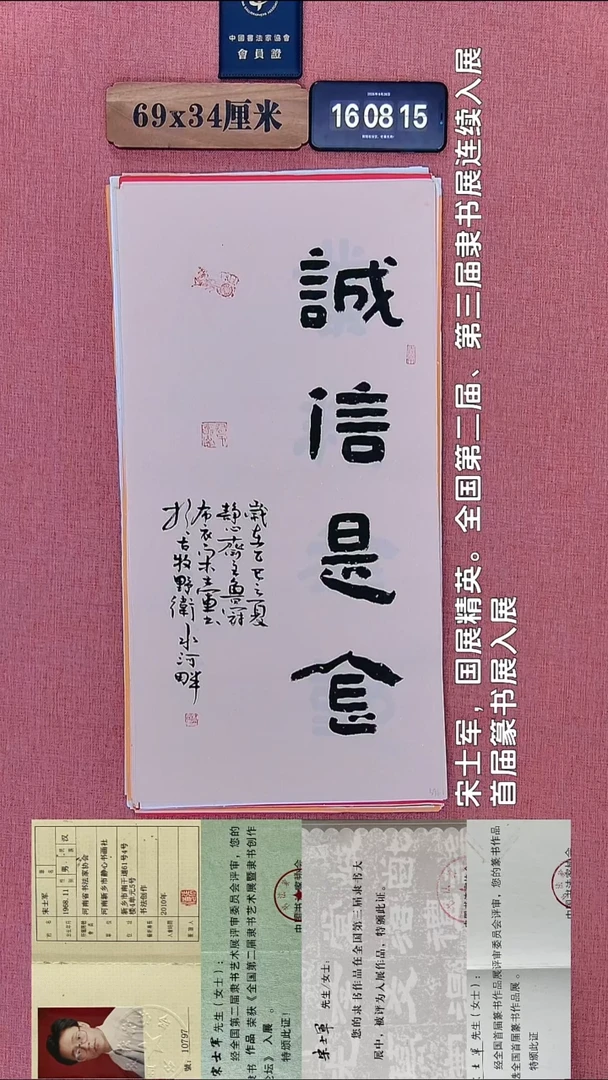 中國書法家協會
會員證
69x34厘米
16 08 15
誠信是金
歲在乙巳之夏
靜心齋主魚冠
布衣宋士軍書
於古牧野衛水河畔
宋士军，国展精英。全国第二届、第三届隶书展连续入展
首届篆书展入展
宋士军
1968.11 男 汉
河南省书法家协会
河南新乡市静心书画社
新乡市南干道61号4号
楼4单元5号
书法创作
2010年
號：10797
宋士军 先生（女士）：
经全国第二届隶书艺术展评审委员会评审，您的
隶书 作品 荣获《全国第二届隶书艺术展暨隶书创作
论坛》入展 。
特颁此证！
宋士軍 先生/女士：
您的隶书作品在全国第三届隶书大
展中，被评为入展作品，特颁此证。
士军 先生（女士）：
经全国首届篆书作品展评审委员会评审，您的篆书作品
全国首届篆书作品展 。
特颁此证